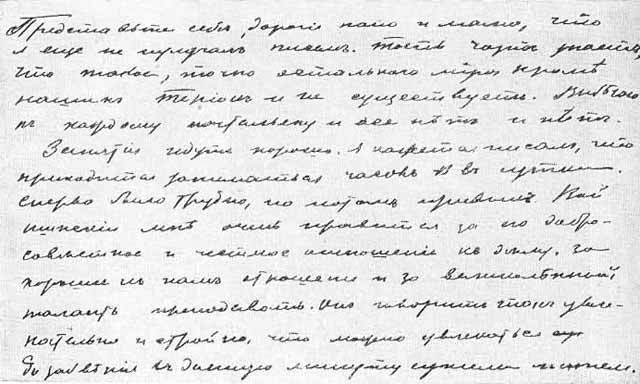 Представьте себѣ, дорогіе папа и мама, что
я еще не получалъ писемъ. Тоесть чортъ знаетъ,
что такое, точно остального міра кромѣ
нашихъ Теріокъ и не существуетъ. Выбѣгаю
къ каждому почтальону и все нѣтъ и нѣтъ.
Занятія идутъ хорошо. Я кажется писалъ, что
приходится заниматься часовъ въ сутки.
Сперва было трудно, но потомъ привыкъ.
мнѣ очень нравится за его добро-
совѣстное и честное отношеніе къ дѣлу, за
хорошее къ намъ отношеніе и за великолѣпный
талантъ преподавать. Онъ говоритъ такъ увле-
кательно и стройно, что можно увлекаться
до забвенія въ данную минуту